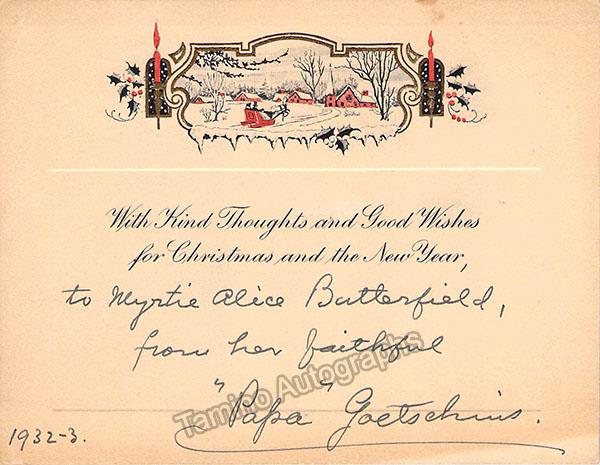 With Kind Thoughts and Good Wishes
for Christmas and the New Year,
to Myrtie Alice Butterfield,
from her faithful
"Papa" Goetschius.
1932-3.
Tamino Autographs